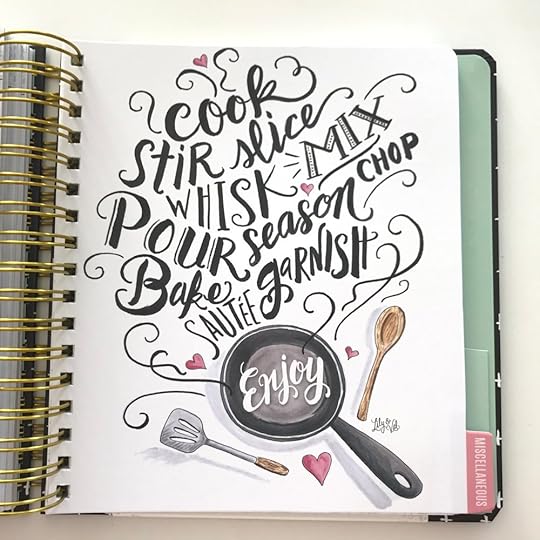 cook
STIR slice
WHISK MIX
CHOP
POUR season
Bake GARNISH
SAUTÉE
Enjoy
Lily & Val
MISCELLANEOUS